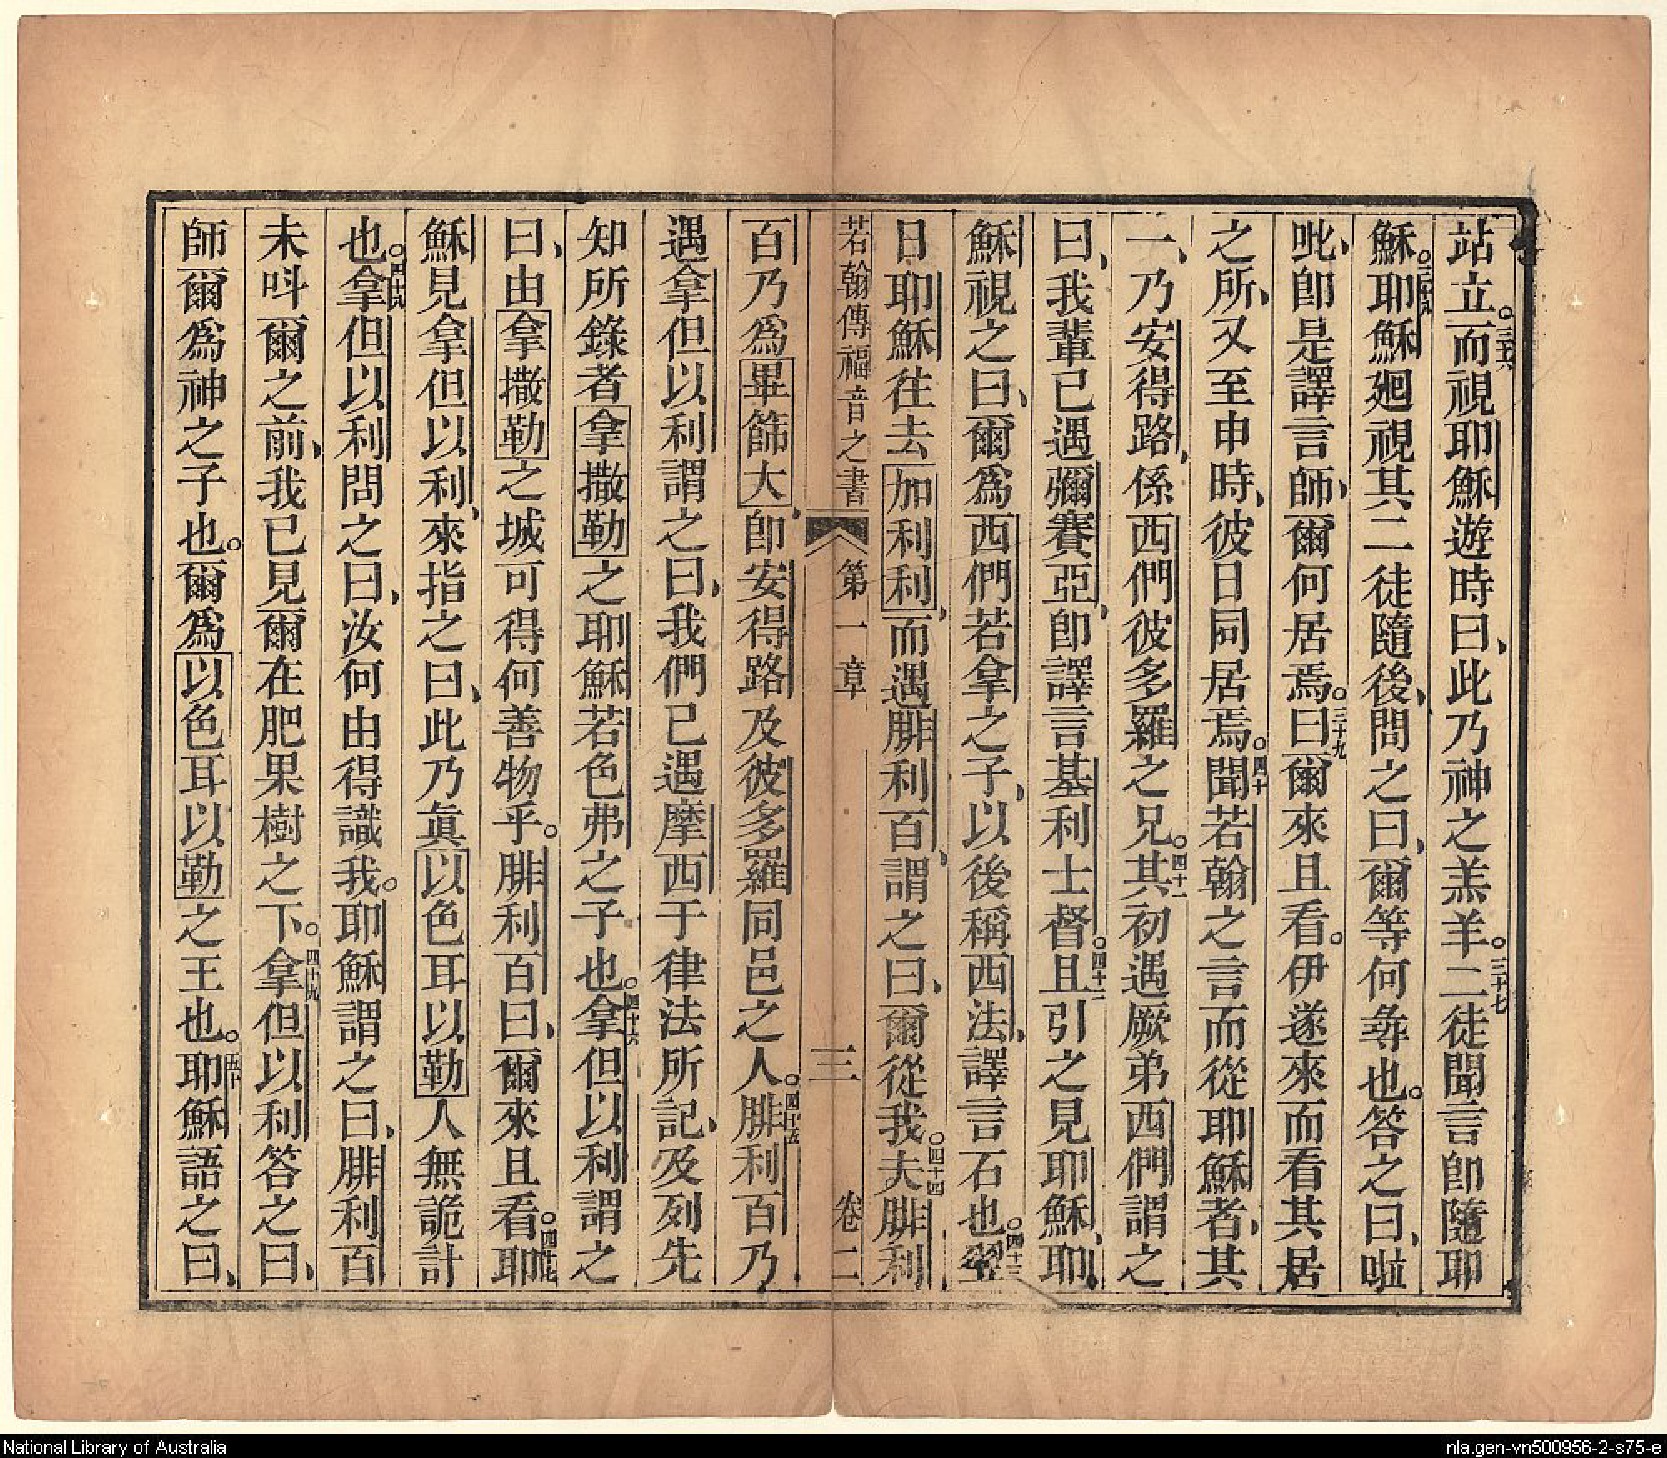 站立。三十六而視耶穌遊時曰、此乃神之羔羊。三十七二徒聞言即隨耶
穌。三十八耶穌廻視其二徒隨後、問之曰、爾等何尋也。答之曰、㘓
吡、即是譯言師、爾何居焉。三十九曰爾來且看。伊遂來而看其居
之所、又至申時、彼日同居焉。四十聞若翰之言而從耶穌者、其
一、乃安得路、係西們彼多羅之兄。四十一其初遇厥弟西們謂之
曰、我輩已遇彌賽亞、即譯言基利士督。四十二且引之見耶穌、耶
穌視之曰、爾為西們若拿之子、以後稱西法、譯言石也。四十三翌
日耶穌往去加利利、而遇腓利百、謂之曰、爾從我。四十四夫腓利
若翰傳福音之書 第一章 三 卷二
百乃為畢篩大、即安得路及彼多羅同邑之人。四十五腓利百乃
遇拿但以利謂之曰、我們已遇摩西于律法所記、及列先
知所錄者拿撒勒之耶穌若色弗之子也。四十六拿但以利謂之
曰、由拿撒勒之城可得何善物乎。腓利百曰、爾來且看。四十七耶
穌見拿但以利、來指之曰、此乃眞以色耳以勒人無詭計
也。四十八拿但以利問之曰、汝何由得識我。耶穌謂之曰、腓利百
未呌爾之前、我已見爾在肥果樹之下。四十九拿但以利答之曰、
師爾為神之子也。爾為以色耳以勒之王也。五十耶穌語之曰、
National Library of Australia
nla.gen-vn500956-2-s75-e